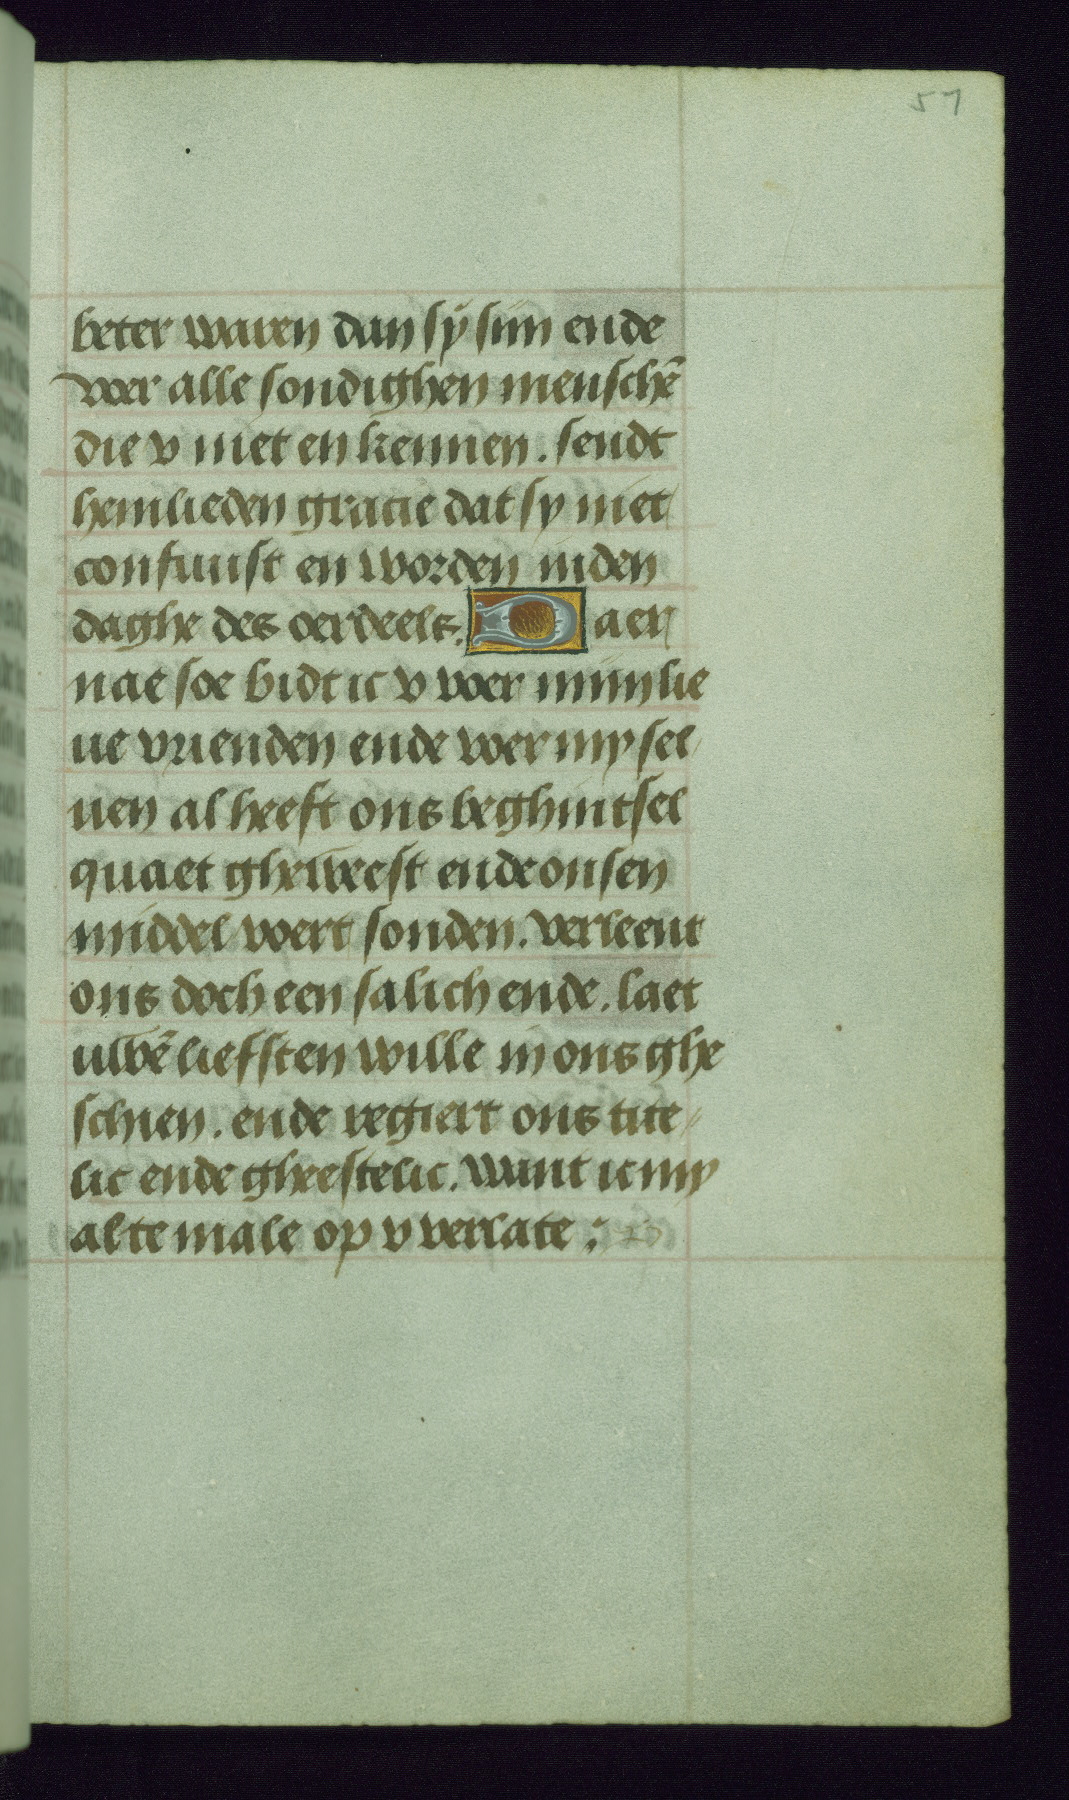 57
beter waren dan sÿ siin ende
voer alle sondighen menschē
die v niet en kennen. sendt
hemlieden gracie dat sy niet
confuust en worden inden
daghe des oerdeels. Daer
nae soe bidt ic v voer miin lie
ue vrienden ende voer my sel
uen al heeft ons beghintsel
quaet gheweest ende onsen
middel voert sonden. verleent
ons doch een salich ende. laet
liefsten wille in ons ghe
schien. ende regiert ons tite
lic ende gheestelic. want ic my
alte male op v verlate :